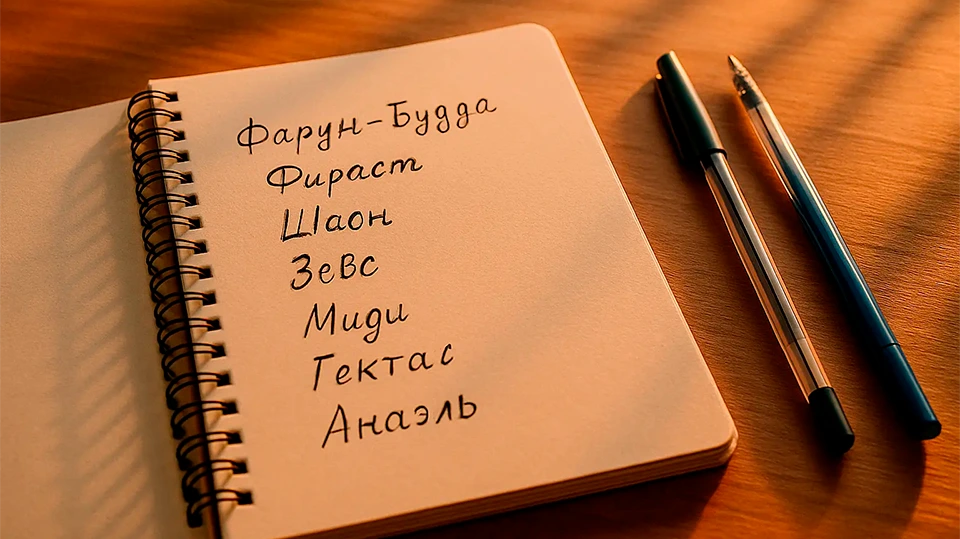 Фарун-Будда
Фираст
Шаон
Зевс
Миди
Гектас
Анаэль